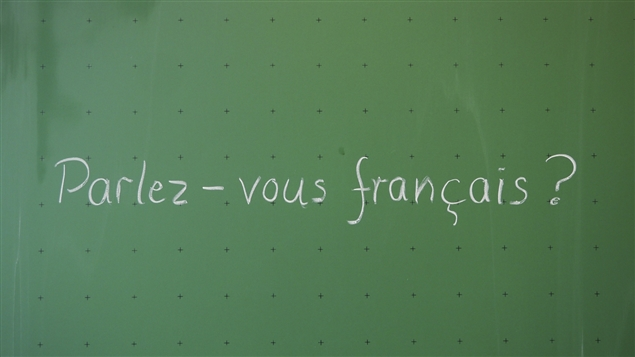 Parlez-vous français ?